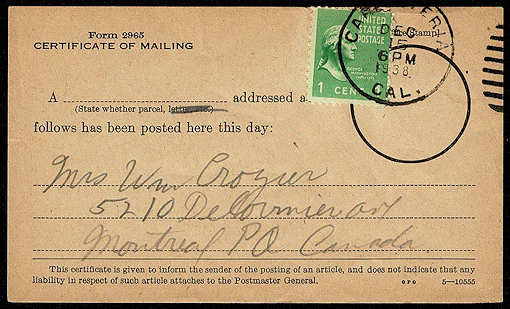 Form 2965
CERTIFICATE OF MAILING
UNITED STATES POSTAGE
GEORGE WASHINGTON
1 CEN
DEC
15
6 PM
1938
CAL.
Stamp)
A ........ addressed a
(State whether parcel, letter, etc.)
follows has been posted here this day:
Mrs Wm Crozier
5210 DeCormier av
Montreal PQ Canada.
This certificate is given to inform the sender of the posting of an article, and does not indicate that any
liability in respect of such article attaches to the Postmaster General.
GPO 5—10555